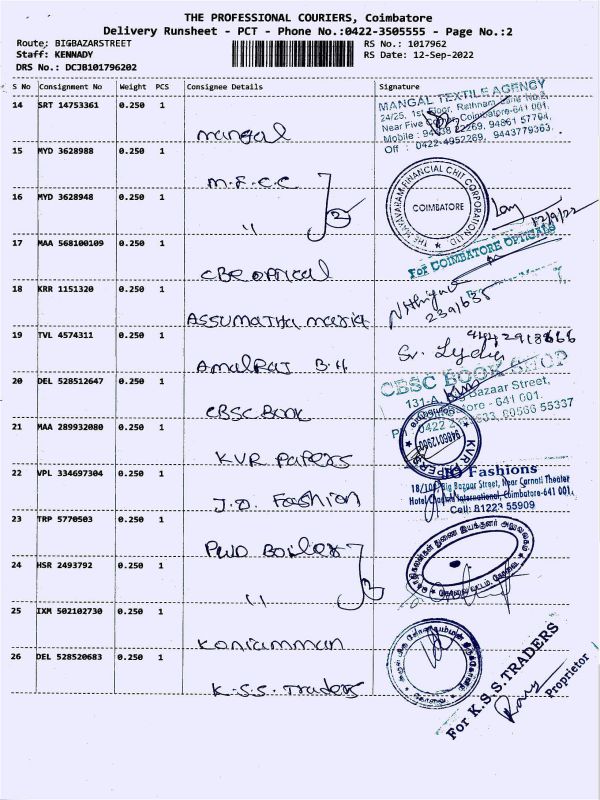 THE PROFESSIONAL COURIERS, Coimbatore
Delivery Runsheet - PCT - Phone No.:0422-3505555 - Page No.:2
Route: BIGBAZARSTREET
Staff: KENNADY
DRS No.: DCJB101796202
RS No.: 1017962
RS Date: 12-Sep-2022
S No Consignment No Weight PCS Consignee Details Signature
14 SRT 14753361 0.250 1
Mangal
MANGAL TEXTILE AGENCY
24/25, 1st Floor, Rathnam Lane No.2,
Near Five Coimbatore-641 001.
Mobile : 22269, 94861 57794,
Off : 0422-4952269, 9443779363.
15 MYD 3628988 0.250 1
M.F.C.C
16 MYD 3628948 0.250 1
"
2
THE MAYAVARAM FINANCIAL CHIT CORPORATION LTD
COIMBATORE
12/9/22
17 MAA 568100109 0.250 1
CBE OPTICAL
For COIMBATORE OPTICALS
18 KRR 1151320 0.250 1
ASSUMATHA Maria
2391635
19 TVL 4574311 0.250 1
AMALRAJ B.H
Sr. Lydia
20 DEL 528512647 0.250 1
CBSC BOOK
CBSC BOOK SHOP
131-A, Big Bazaar Street,
- 641 001.
0422 55337
21 MAA 289932080 0.250 1
KVR PAPERS
KVR PAPERS
22 VPL 334697304 0.250 1
J.D. Fashion
JD Fashions
18/109 Big Bazaar Street, Near Carnati Theater
Hotel International, Coimbatore-641 001.
Cell: 81223 55909
23 TRP 5770503 0.250 1
PWD Boiler
24 HSR 2493792 0.250 1
"
25 IXM 502102730 0.250 1
Koniamman
26 DEL 528520683 0.250 1
K.S.S. Traders
For K.S.S.TRADERS
Proprietor